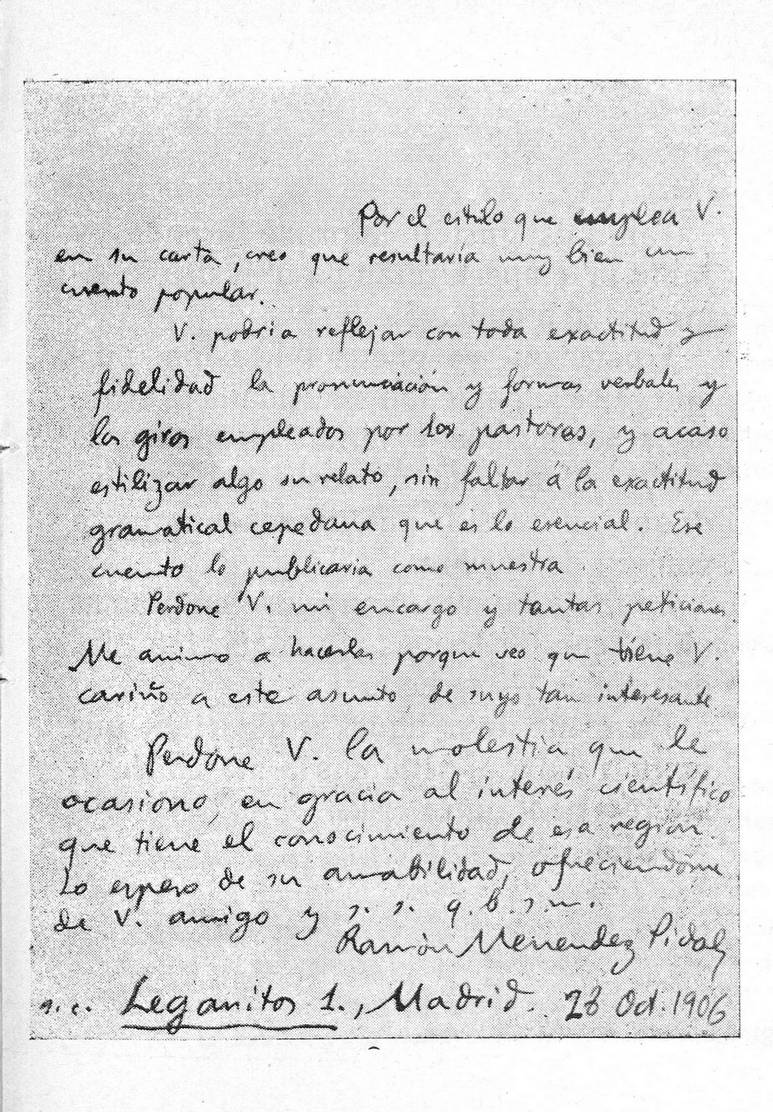 Por el estilo que emplea V.
en su carta, creo que resultaría muy bien un
cuento popular.
V. podria reflejar con toda exactitud y
fidelidad la pronunciación y formas verbales y
los giros empleados por los pastores, y acaso
estilizar algo su relato, sin faltar á la exactitud
gramatical cepedana que es lo esencial. Ese
cuento lo publicaria como muestra
Perdone V. mi encargo y tantas peticiones.
Me animo a hacerlas porque veo que tiene V.
cariño a este asunto, de suyo tan interesante
Perdone V. la molestia que le
ocasiono, en gracia al interés científico
que tiene el conocimiento de esa region.
Lo espero de su amabilidad, ofreciendome
de V. amigo y s. s. q. b. s. m.
Ramón Menendez Pidal
s. c. Leganitos 1., Madrid. 28 Oct. 1906